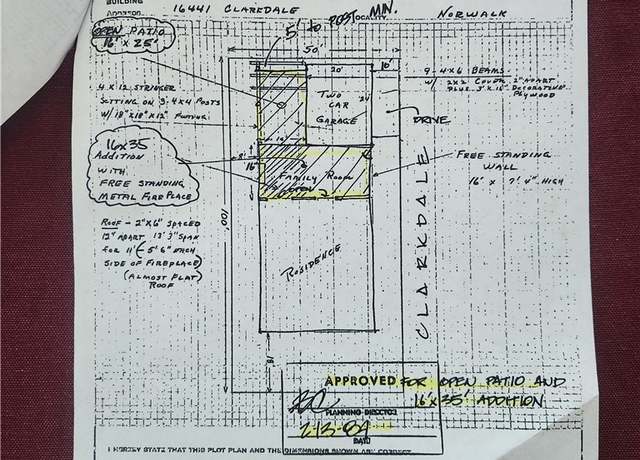 BUILDING
ADDRESS 16441 CLARKDALE
LOCALITY NORWALK
5' to POST MIN.
OPEN PATIO
16' x 25'
50'
20'
10'
4 x 12 STRINGER
SETTING ON 3-4x4 POSTS
W/ 18"x18"x12" FOOTING
TWO
CAR
GARAGE
24'
9 - 4x6 BEAMS
W/ 2x2 COVER 2" APART
PLUS 3' x 16' DECORATIVE
PLYWOOD
DRIVE
16 x 35
ADDITION
WITH
FREE STANDING
METAL FIREPLACE
8'
16'
FAMILY ROOM
FREE STANDING
WALL
16' x 7' 4" HIGH
CLARKDALE
100'
ROOF - 2"x6" SPACED
12" APART 13' 3" SPAN
FOR 11' (- 5' 6" EACH
SIDE OF FIREPLACE)
(ALMOST FLAT)
ROOF
RESIDENCE
APPROVED FOR OPEN PATIO AND
16' x 35' ADDITION
PLANNING DIRECTOR
2-13-84
DATE
I HEREBY STATE THAT THIS PLOT PLAN AND THE DIMENSIONS SHOWN ARE CORRECT